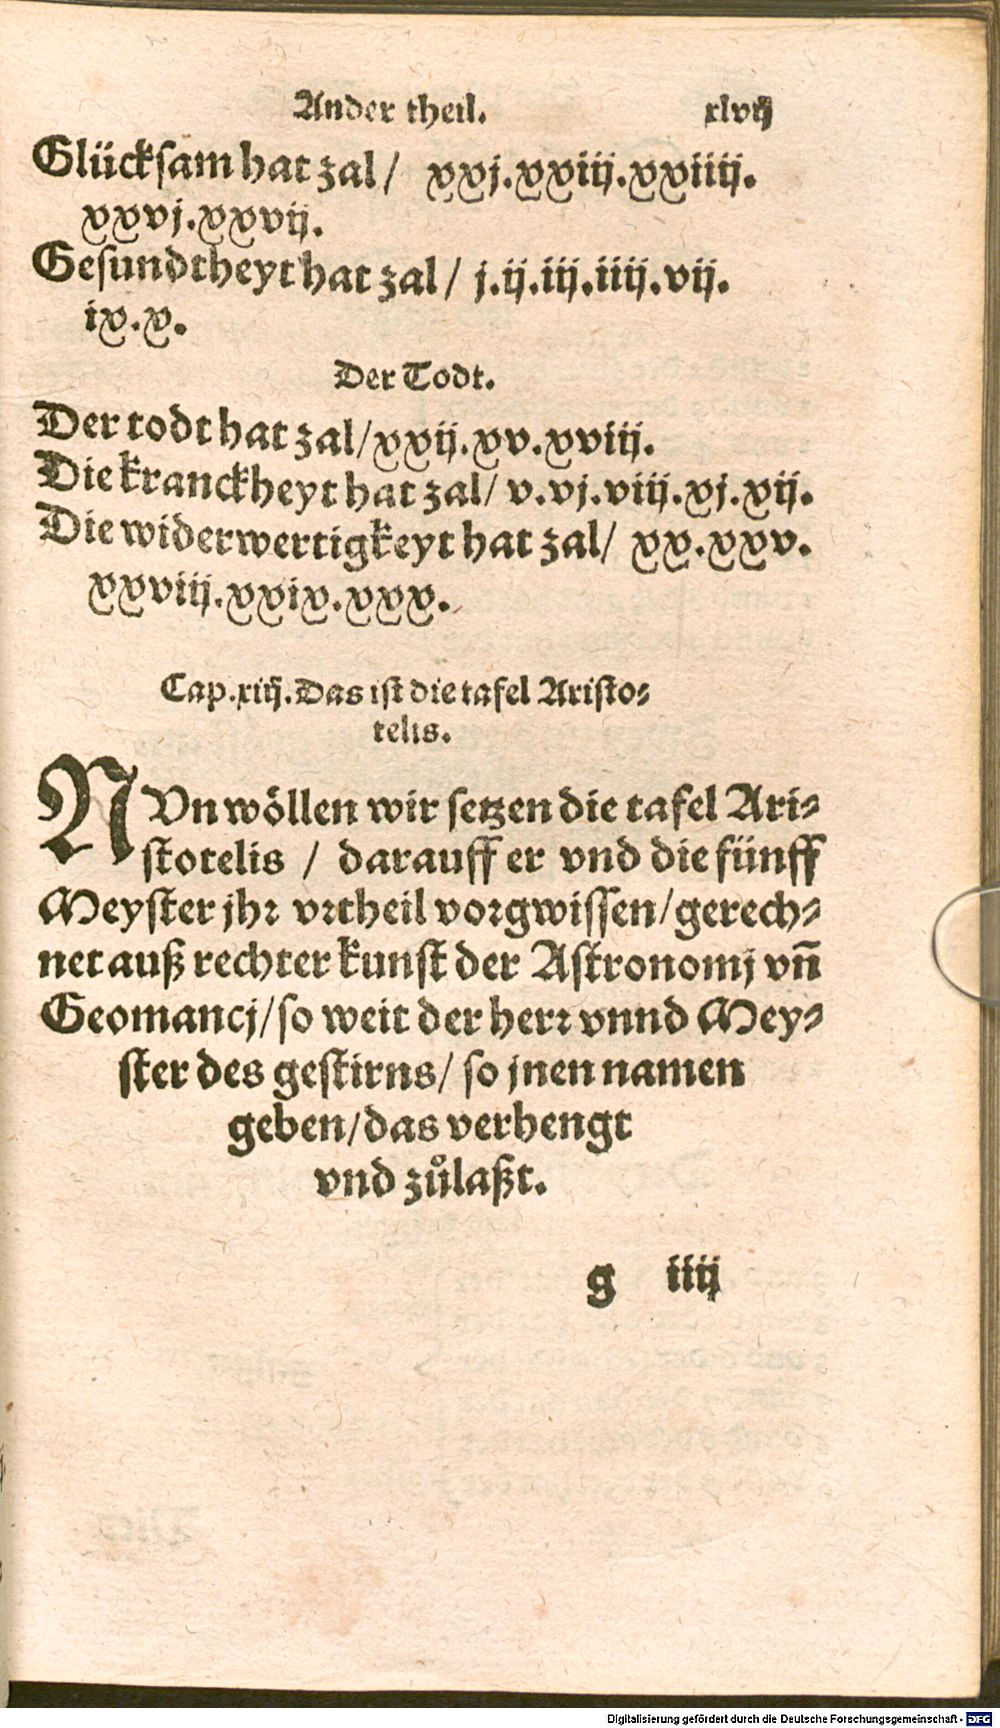 Ander theil. xlvij
Glückſam hat zal / xxj.xxiij.xxiiij.
xxvj.xxvij.
Geſundtheyt hat zal / j.ij.iij.iiij.vij.
ix.x.
Der Todt.
Der todt hat zal/xxij.xv.xviij.
Die kranckheyt hat zal/ v.vj.viij.xj.xij.
Die widerwertigkeyt hat zal/ xx.xxv.
xxviij.xxix.xxx.
Cap.xiij.Das iſt die tafel Ariſto⸗
telis.
NVn wöllen wir ſetzen die tafel Ari⸗
ſtotelis / darauff er vnd die fünff
Meyſter jhꝛ vꝛtheil voꝛgwiſſen/gerech⸗
net auß rechter kunſt der Aſtronomj vn̄
Geomancj/ſo weit der herꝛ vnnd Mey⸗
ſter des geſtirns/ ſo jnen namen
geben/das verhengt
vnd zůlaßt.
g iiij
Digitalisierung gefördert durch die Deutsche Forschungsgemeinschaft - DFG